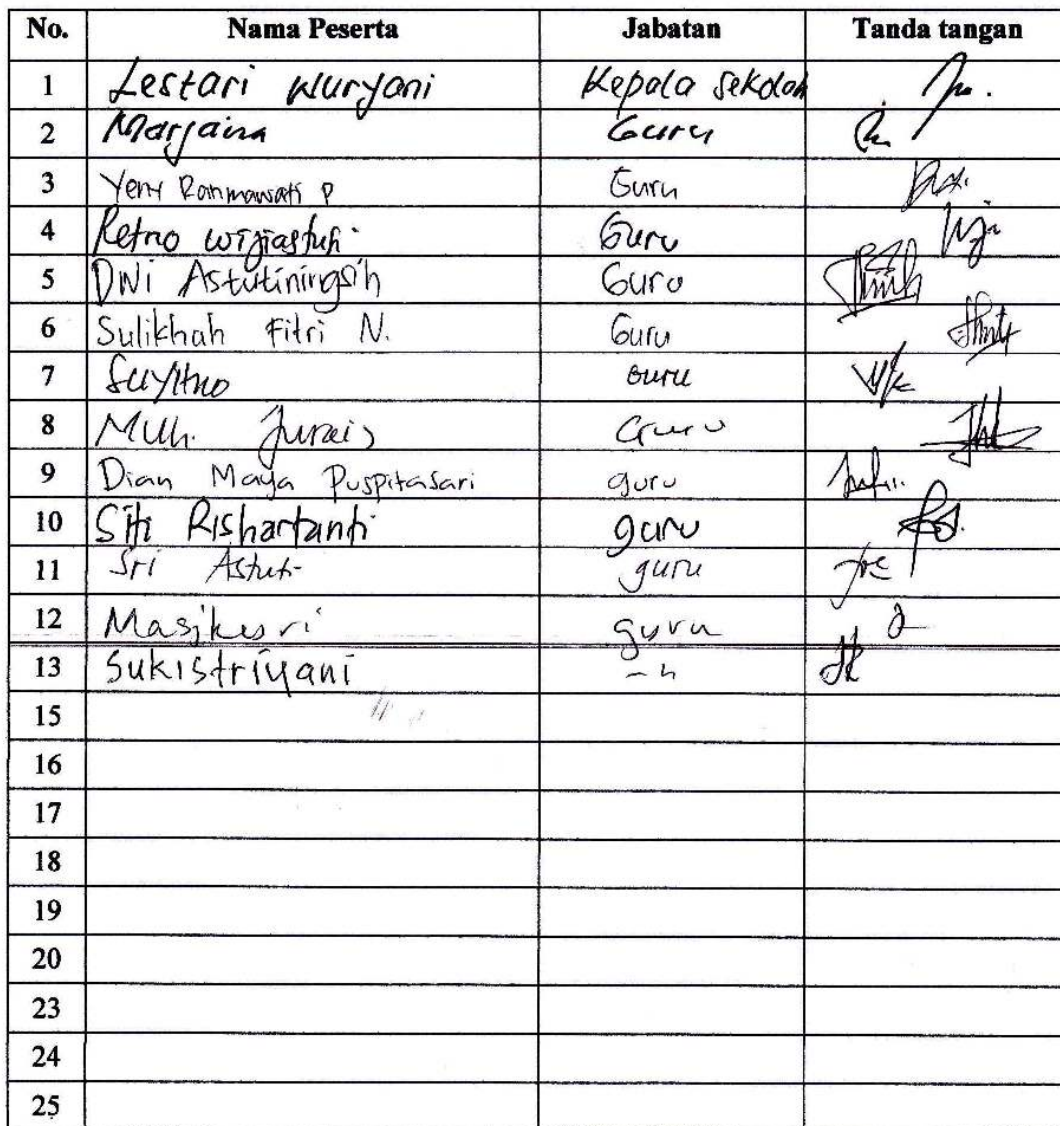 No. Nama Peserta Jabatan Tanda tangan
1 Lestari Wuryani Kepala Sekolah
2 Marjaina Guru
3 Yeny Rahmawati P Guru
4 Retno Wijiastuti Guru
5 Dwi Astutiningsih Guru
6 Sulikhah Fitri N. Guru
7 Suyitno Guru
8 Muh. Guru
9 Dian Maya Puspitasari guru
10 Siti Rishartanti guru
11 Sri Astuti guru
12 Masjkuri guru
13 Sukistriyani
15
16
17
18
19
20
23
24
25